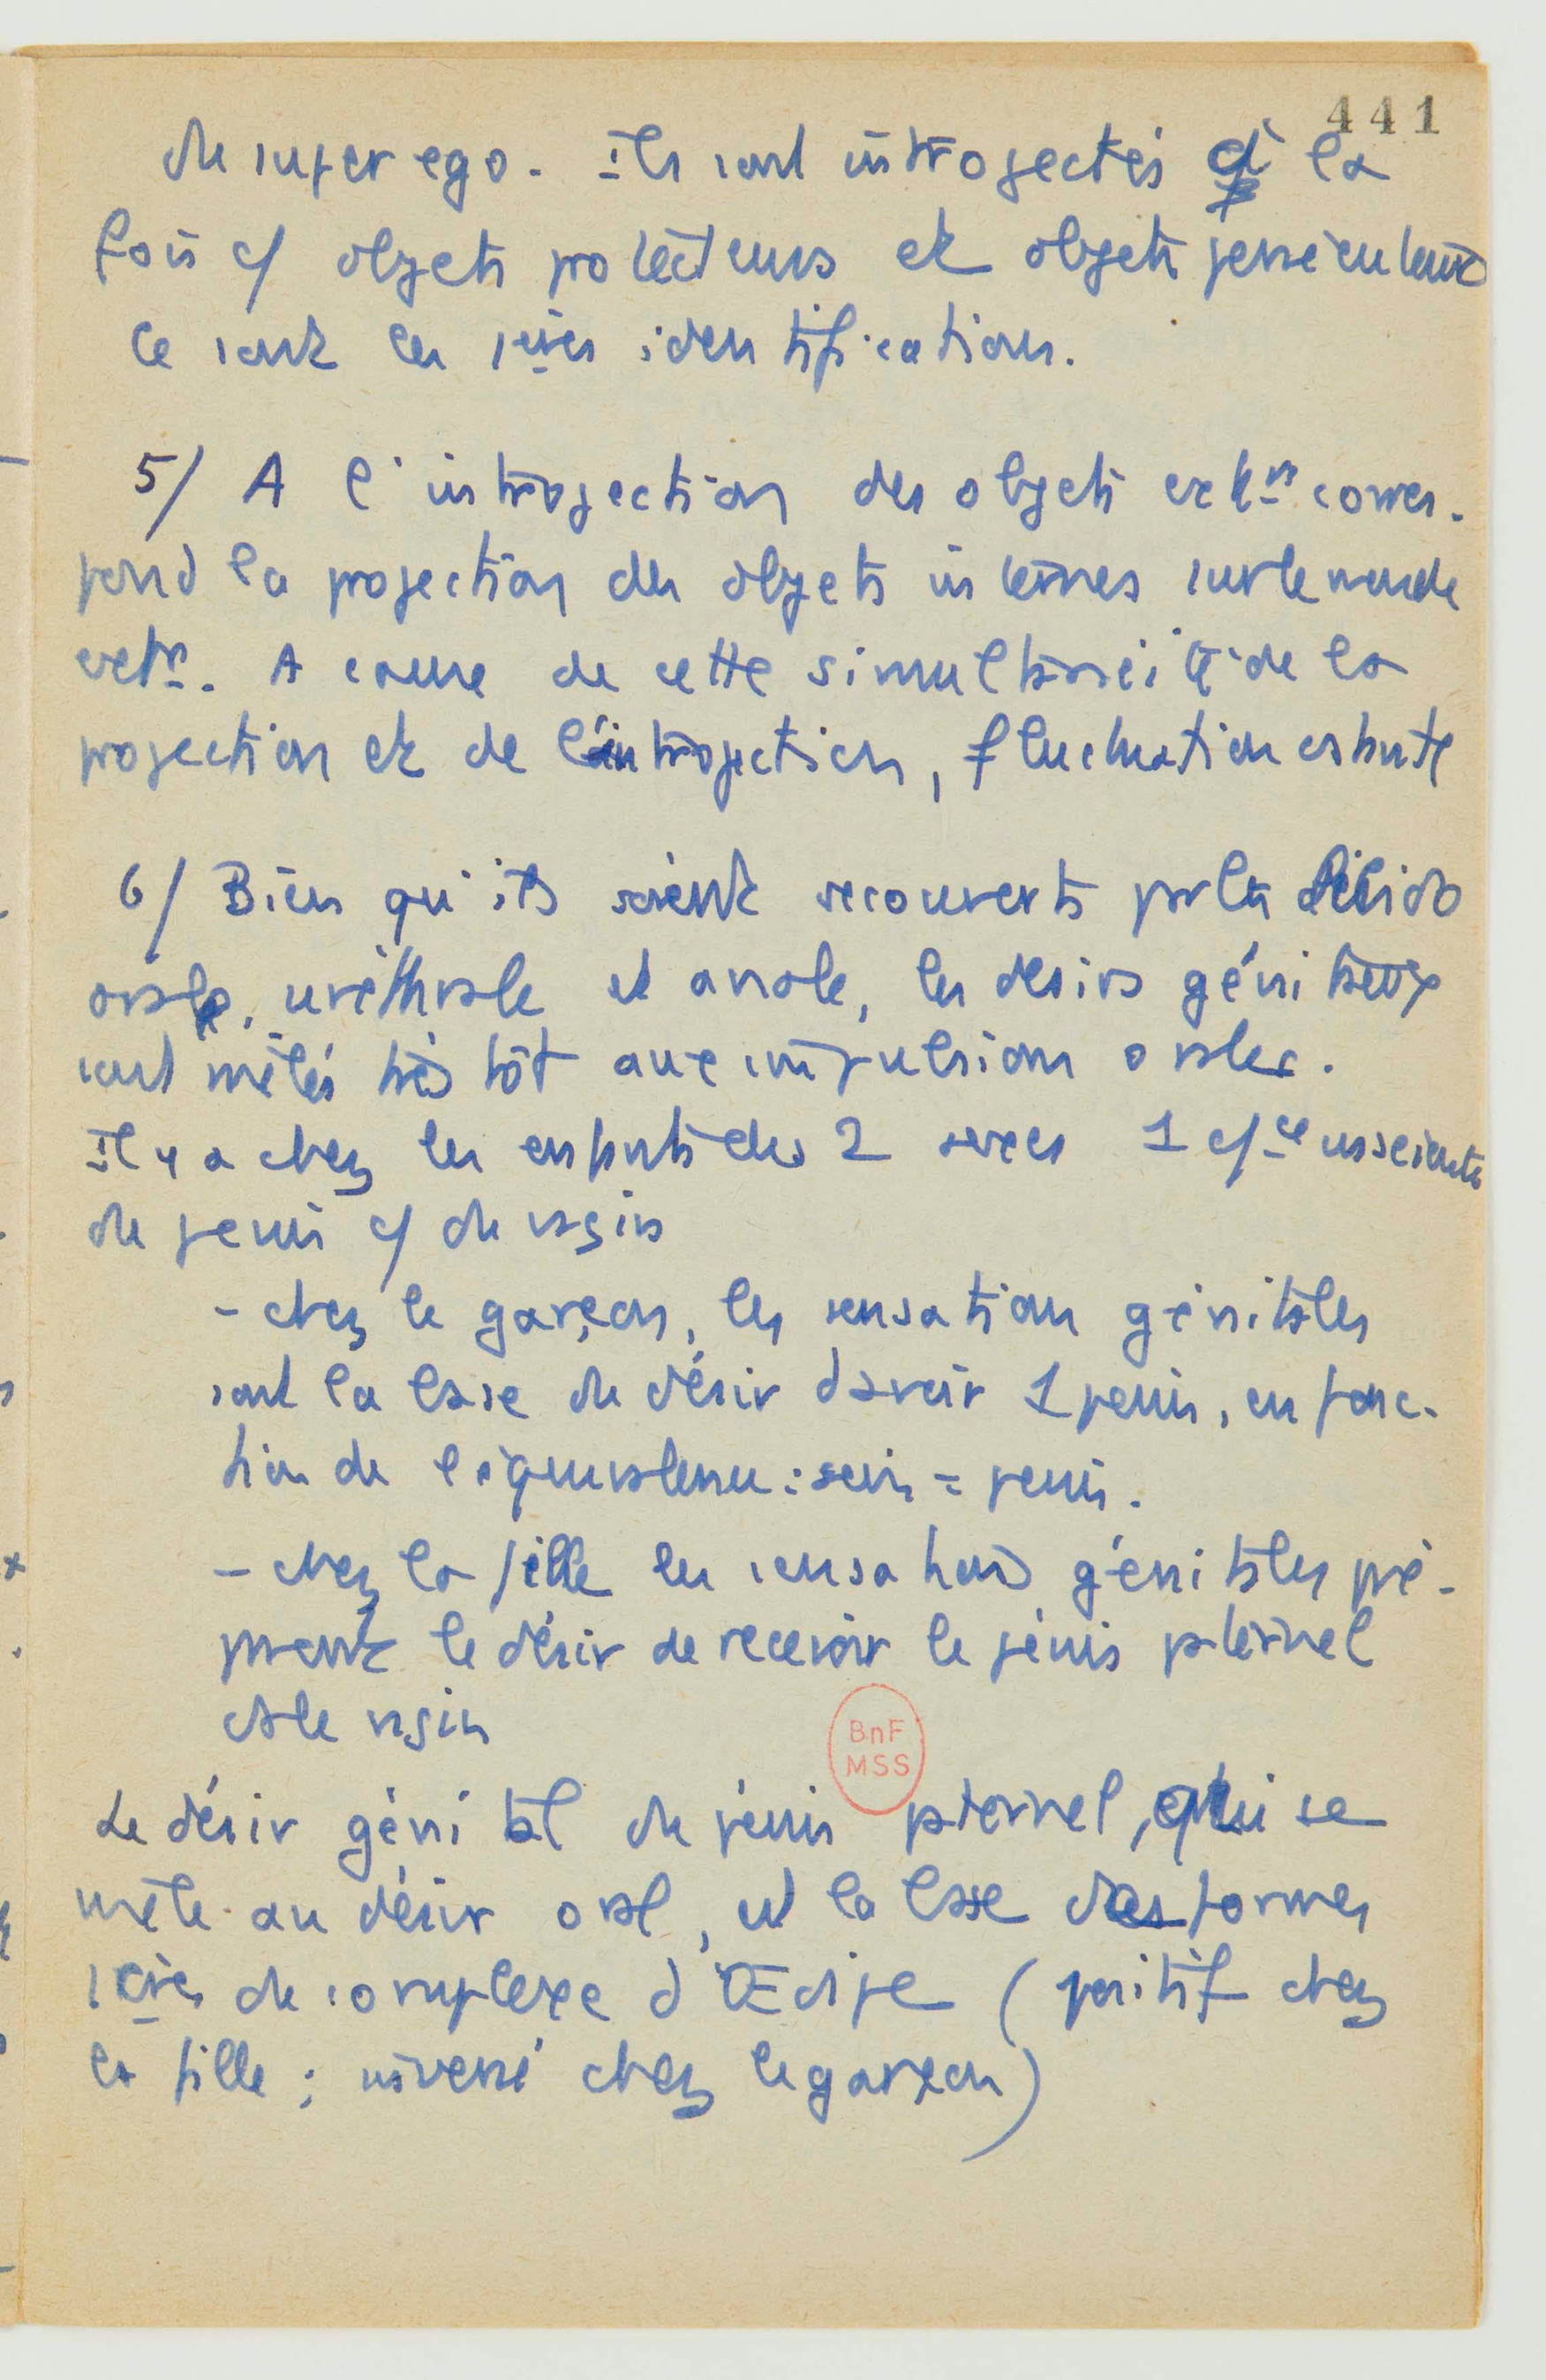 441
du super ego. Ils sont introjectés à la
fois c/ objets protecteurs et objets persécuteurs
Ce sont les 1ères identifications.
5/ A l'introjection des objets extrs corres-
pond la projection des objets internes sur le monde
extr. A cause de cette simultanéité de la
projection et de l'introjection, fluctuation constante
6/ Bien qu'ils soient recouverts par la libido
orale, uréthrale et anale, les désirs génitaux
sont mêlés très tôt aux impulsions orales.
Il y a chez les enfants des 2 sexes 1 c/ce insciente
du penis c/ du vagin
- chez le garçon, les sensations génitales
sont la base du désir d'avoir 1 penis, en fonc-
tion de l'équivalence : sein = penis.
- chez la fille les sensations génitales pré-
parent le désir de recevoir le pénis paternel
ds le vagin
BnF
MSS
Le désir génital du pénis paternel, qui se
mêle au désir oral, est la base des formes
1ères du complexe d'Œdipe (positif chez
la fille ; inversé chez le garçon)